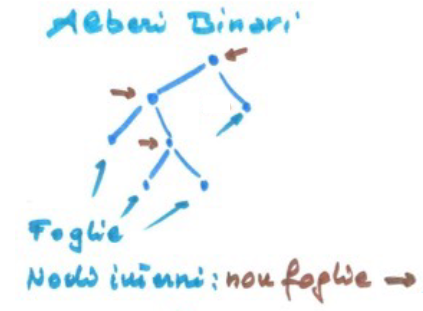 Alberi Binari
Foglie
Nodi interni: non foglie →